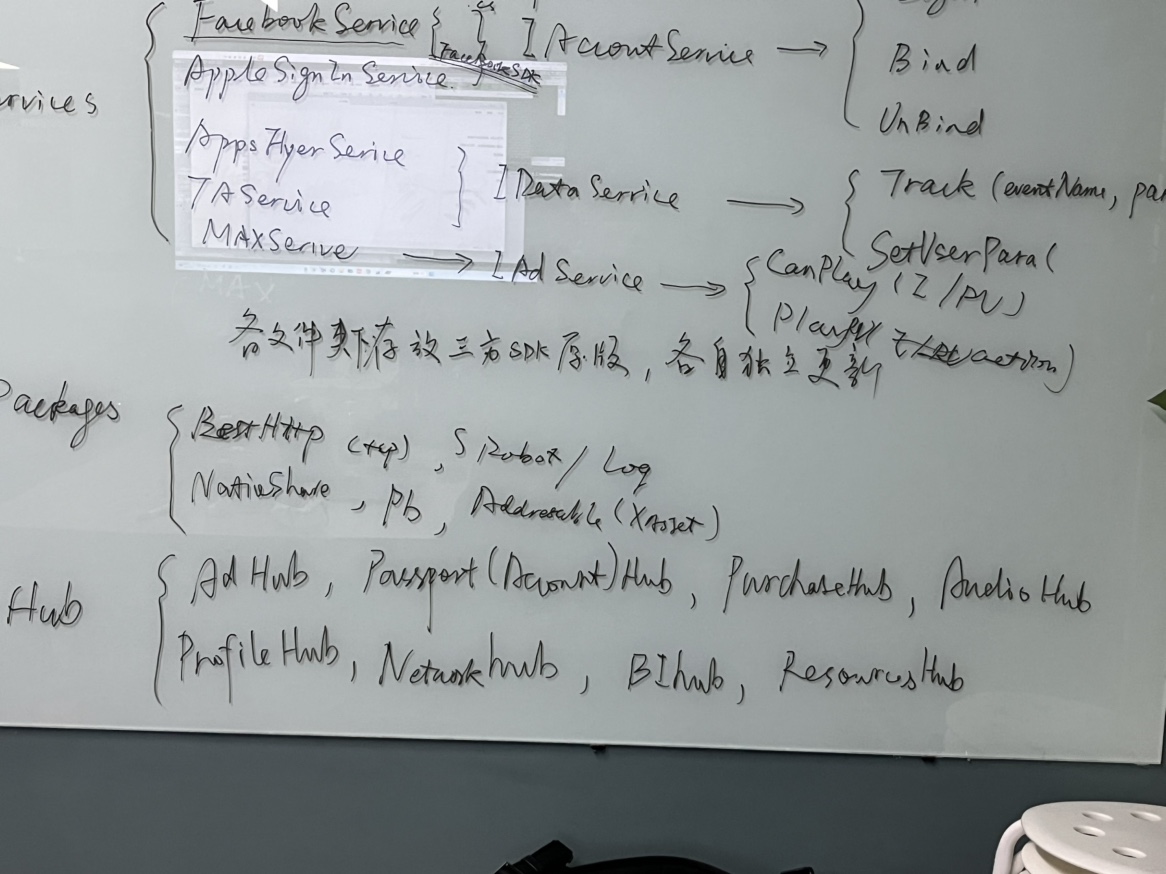 FacebookService { cs } IAccountService → {
FacebookSDK
Bind
AppleSignInService
ervices
UnBind
AppsFlyerSerice
TAService
} IDataService → { Track (eventName, pa
MAXSerive → IAdService → { CanPlay (I/RV)
SetUserPara(
MAX
action)
各文件夹下存放三方SDK原版，各自独立更新
Packages
BestHttp (tcp), SRobot / Log
NativeShare, Pb, Addressable (XAsset)
Hub
AdHub, Passport(Account)Hub, PurchaseHub, AudioHub
ProfileHub, Networkhub, BIhub, ResourcesHub